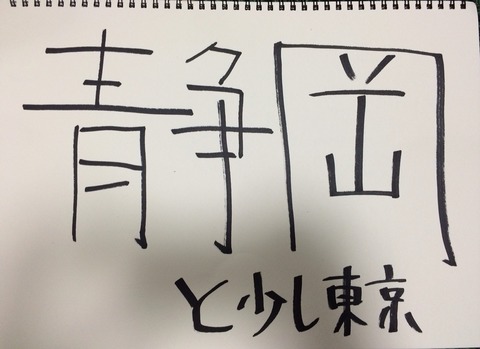 静岡
と少し東京